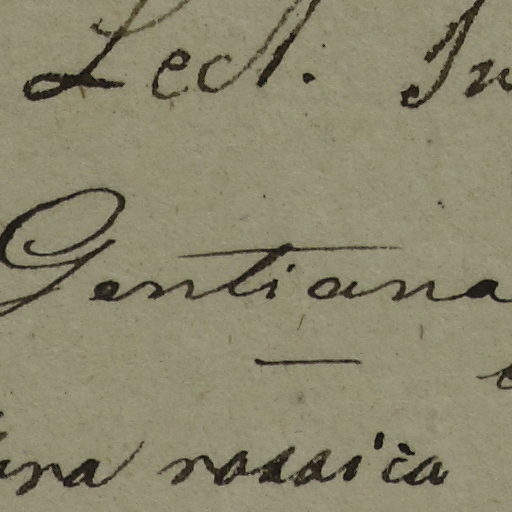 Lect.
Gentiana
—
rossica